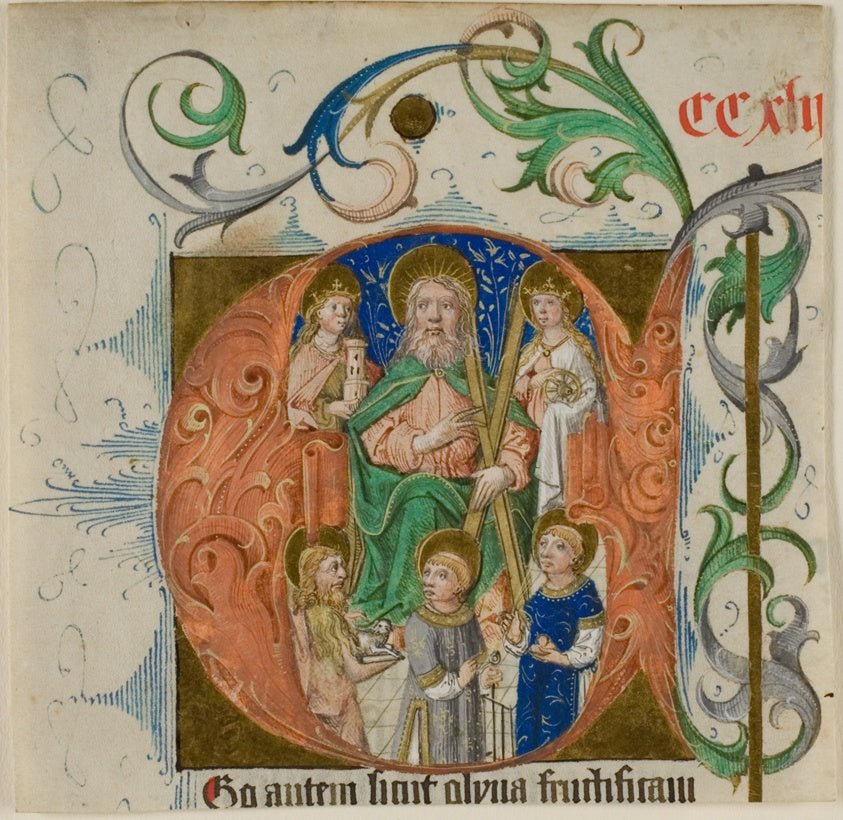 CCxlii
Go autem sicut olyua fructificaui